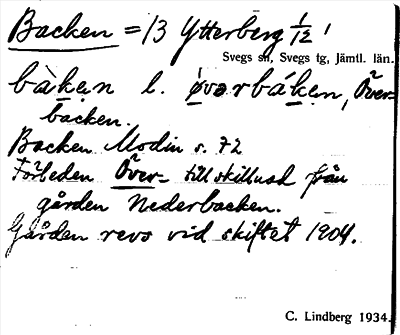 Backen = 13 Ytterberg 1/12 1
Svegs sn, Svegs tg, Jämtl. län.
bàkẹn l. ø̀vərbákẹn, Över-
backen.
Backen Modin s. 72
Förleden Över- till skillnad från
gården Nederbacken.
Gården revs vid skiftet 1904.
C. Lindberg 1934.